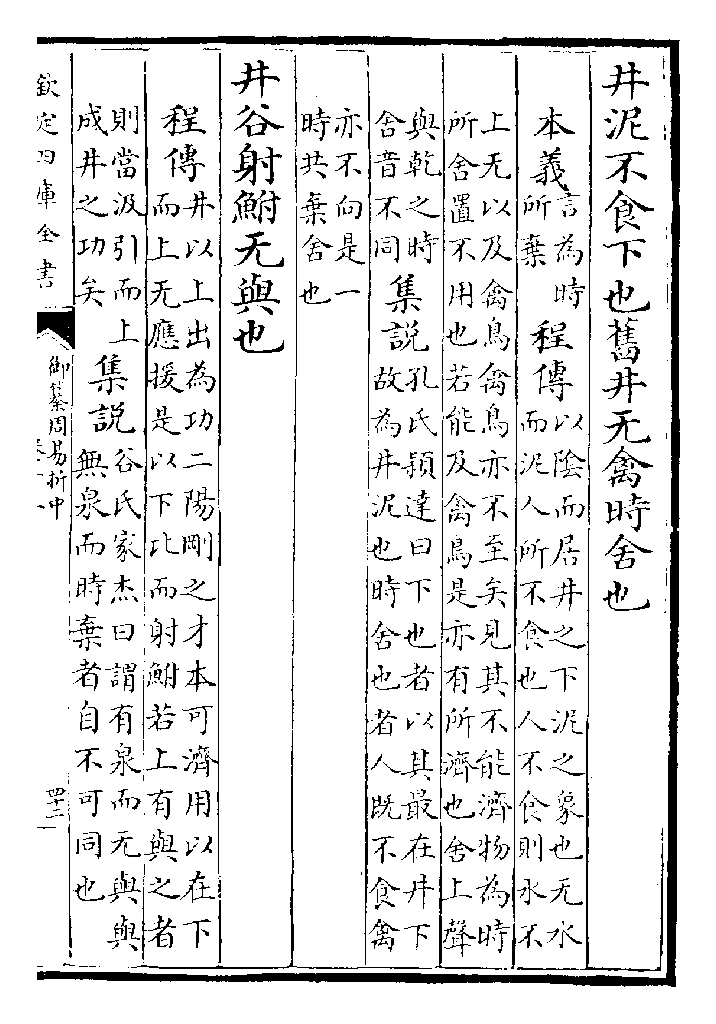 井泥不食下也舊井无禽時舍也
本義言為時
所棄程傳以陰而居井之下泥之象也无水
而泥人所不食也人不食則水不
上无以及禽鳥禽鳥亦不至矣見其不能濟物為時
所舍置不用也若能及禽鳥是亦有所濟也舍上聲
與乾之時
舍音不同集說孔氏穎達曰下也者以其最在井下
故為井泥也時舍也者人既不食禽
亦不向是一
時共棄舍也
井谷射鮒无與也
程傳井以上出為功二陽剛之才本可濟用以在下
而上无應援是以下比而射鮒若上有與之者
則當汲引而上
成井之功矣集說谷氏家杰曰謂有泉而无與與
無泉而時棄者自不可同也
欽定四庫全書
御纂周易折中
四十二